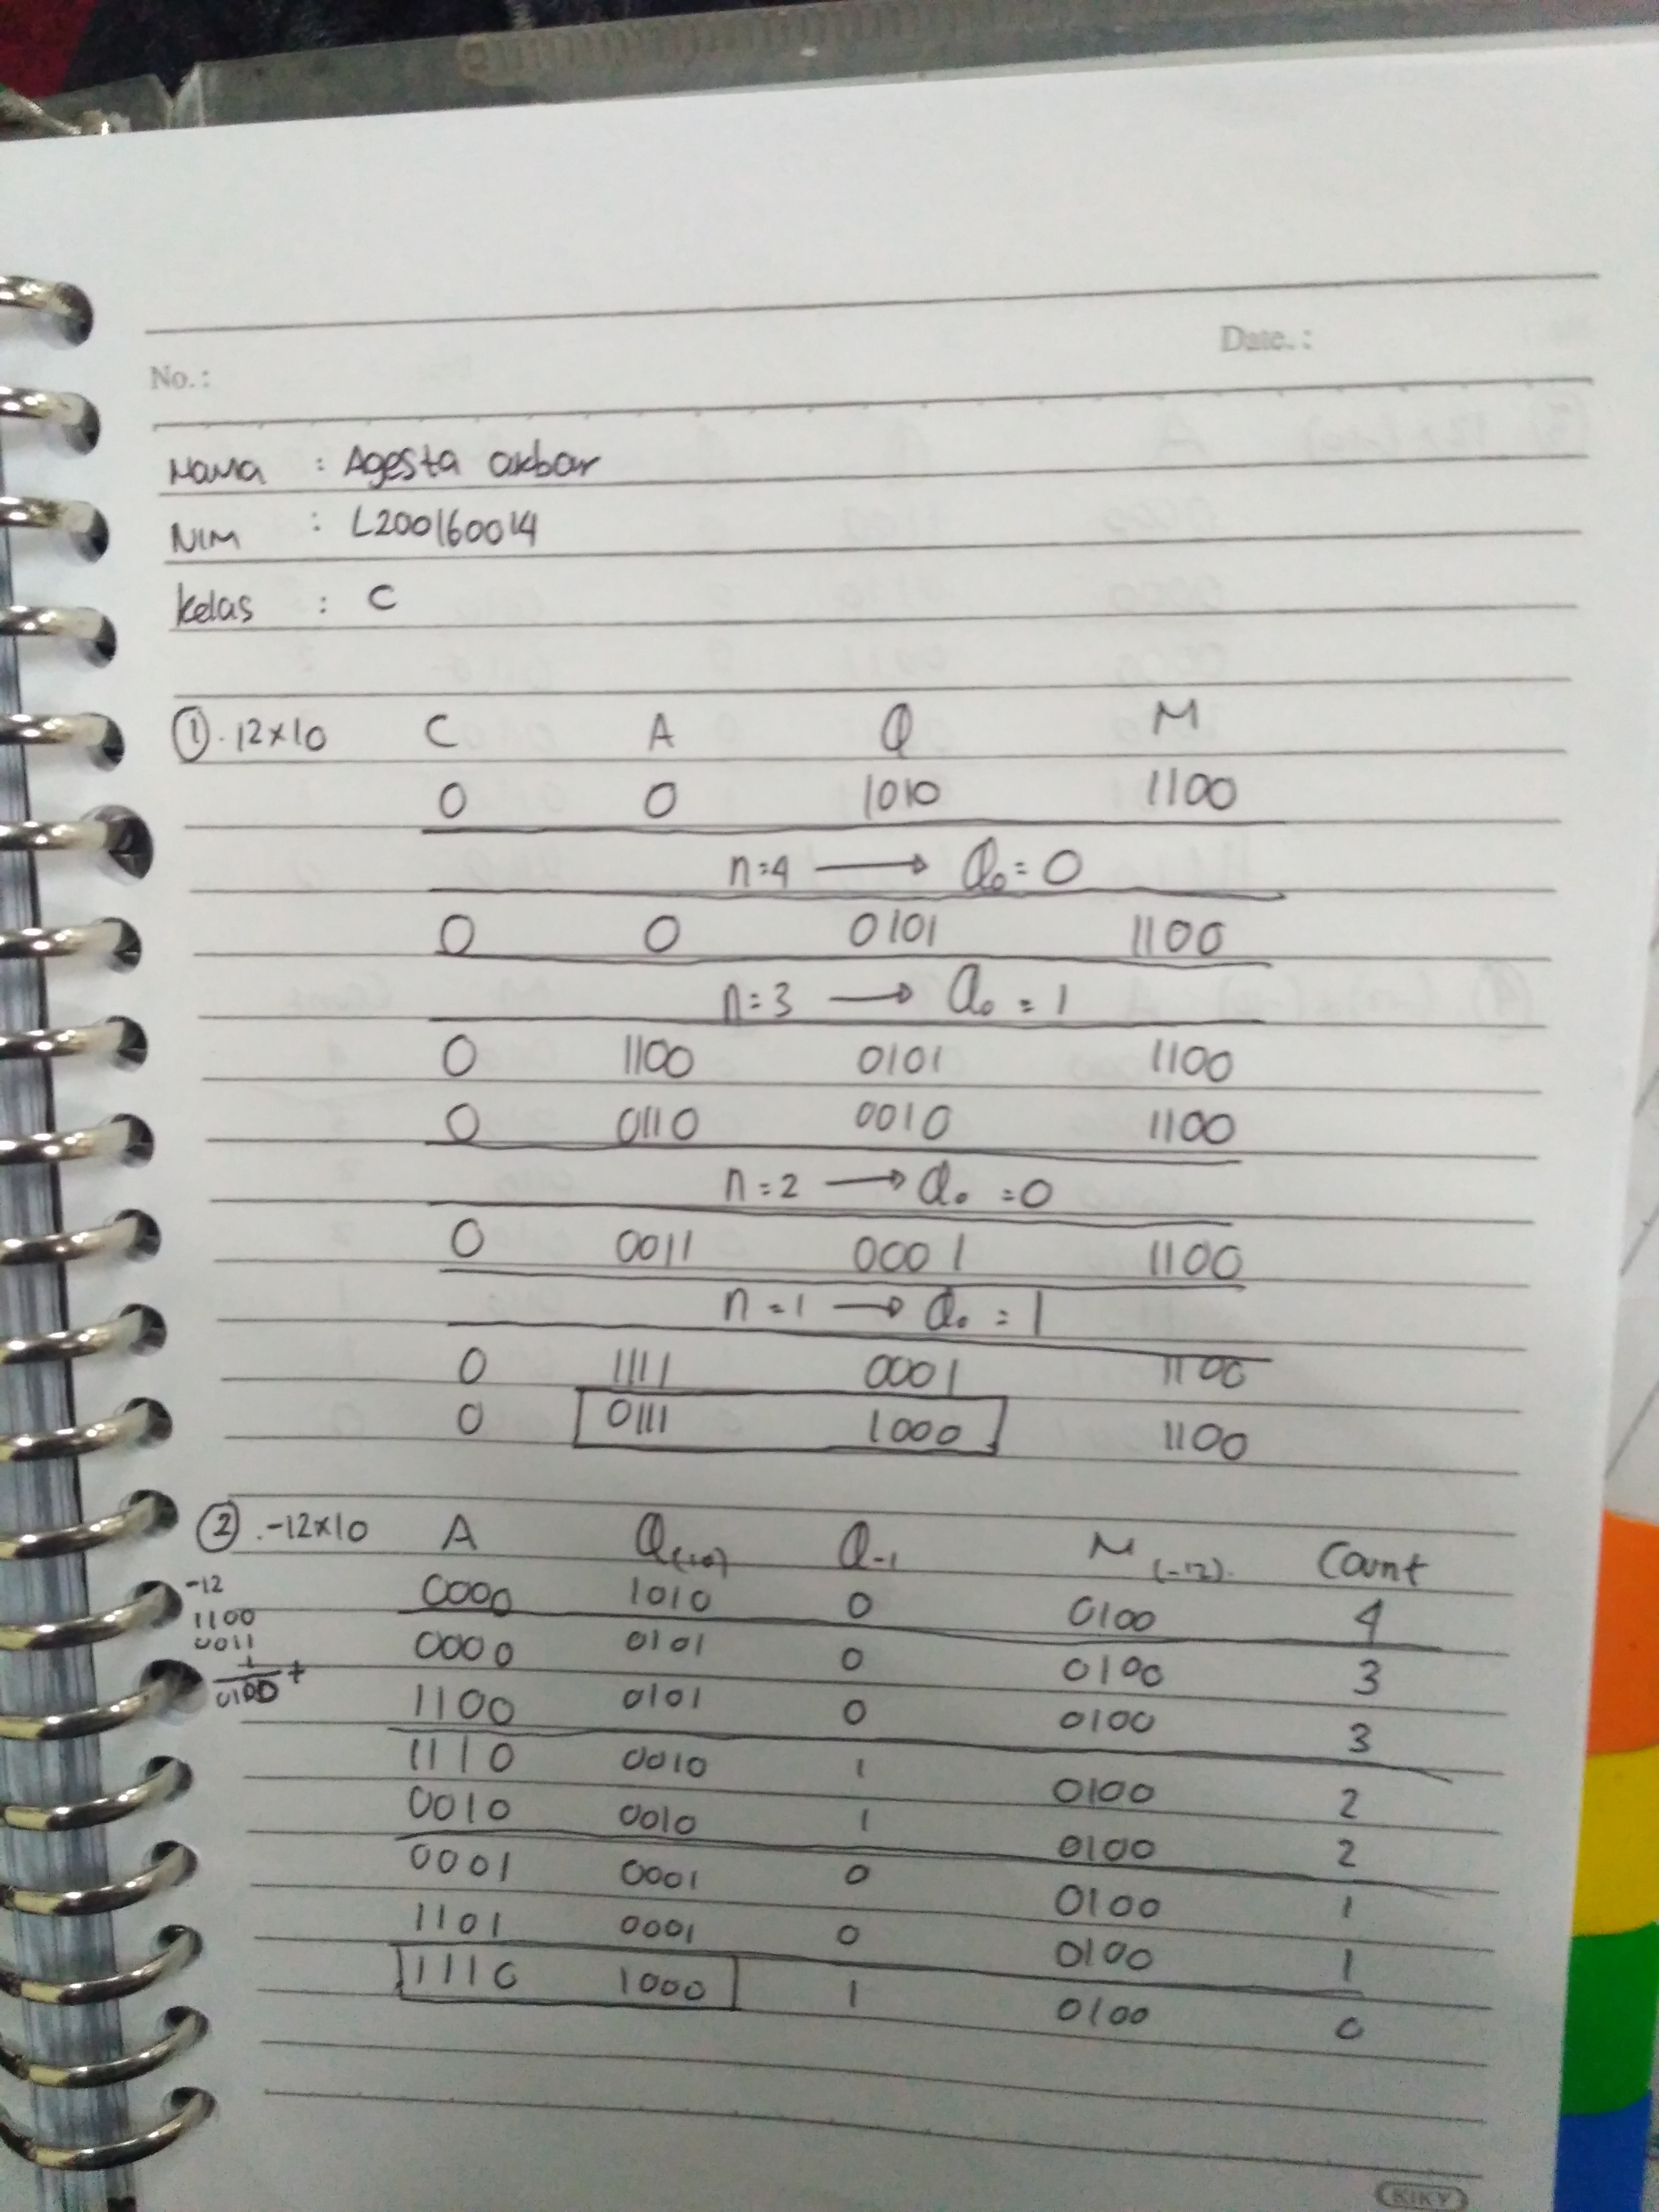 No.:
Date.:
Nama : Agesta akbar
NIM : L200160014
Kelas : C
① . 12×10 C A Q M
0 0 1010 1100
n=4 → Q₀ = 0
0 0 0101 1100
n=3 → Q₀ = 1
0 1100 0101 1100
0 0110 0010 1100
n=2 → Q₀ = 0
0 0011 0001 1100
n=1 → Q₀ = 1
0 1111 0001 1100
0 0111 1000 1100
② . -12×10 A Q(10) Q-1 M(-12) Count
-12
1100
0011
1
0100 +
0000 1010 0 0100 4
0000 0101 0 0100 3
1100 0101 0 0100 3
1110 0010 1 0100 2
0010 0010 1 0100 2
0001 0001 0 0100 1
1101 0001 0 0100 1
1110 1000 1 0100 0
KIKY